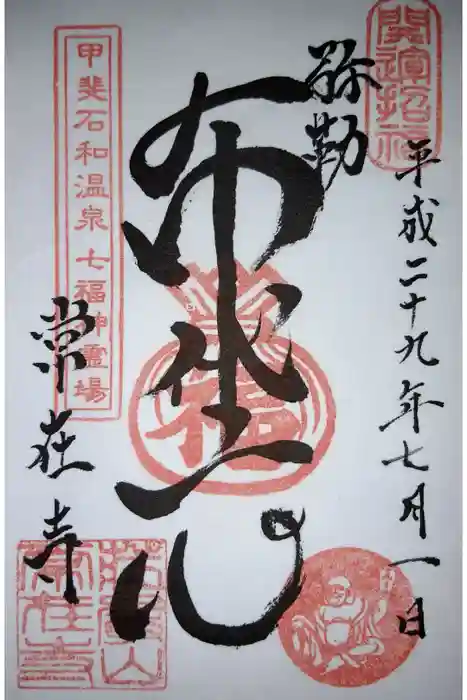 開運招福
平成二十九年七月一日
弥勒
布袋尊
福
甲斐石和温泉七福神霊場
常在寺
常在寺